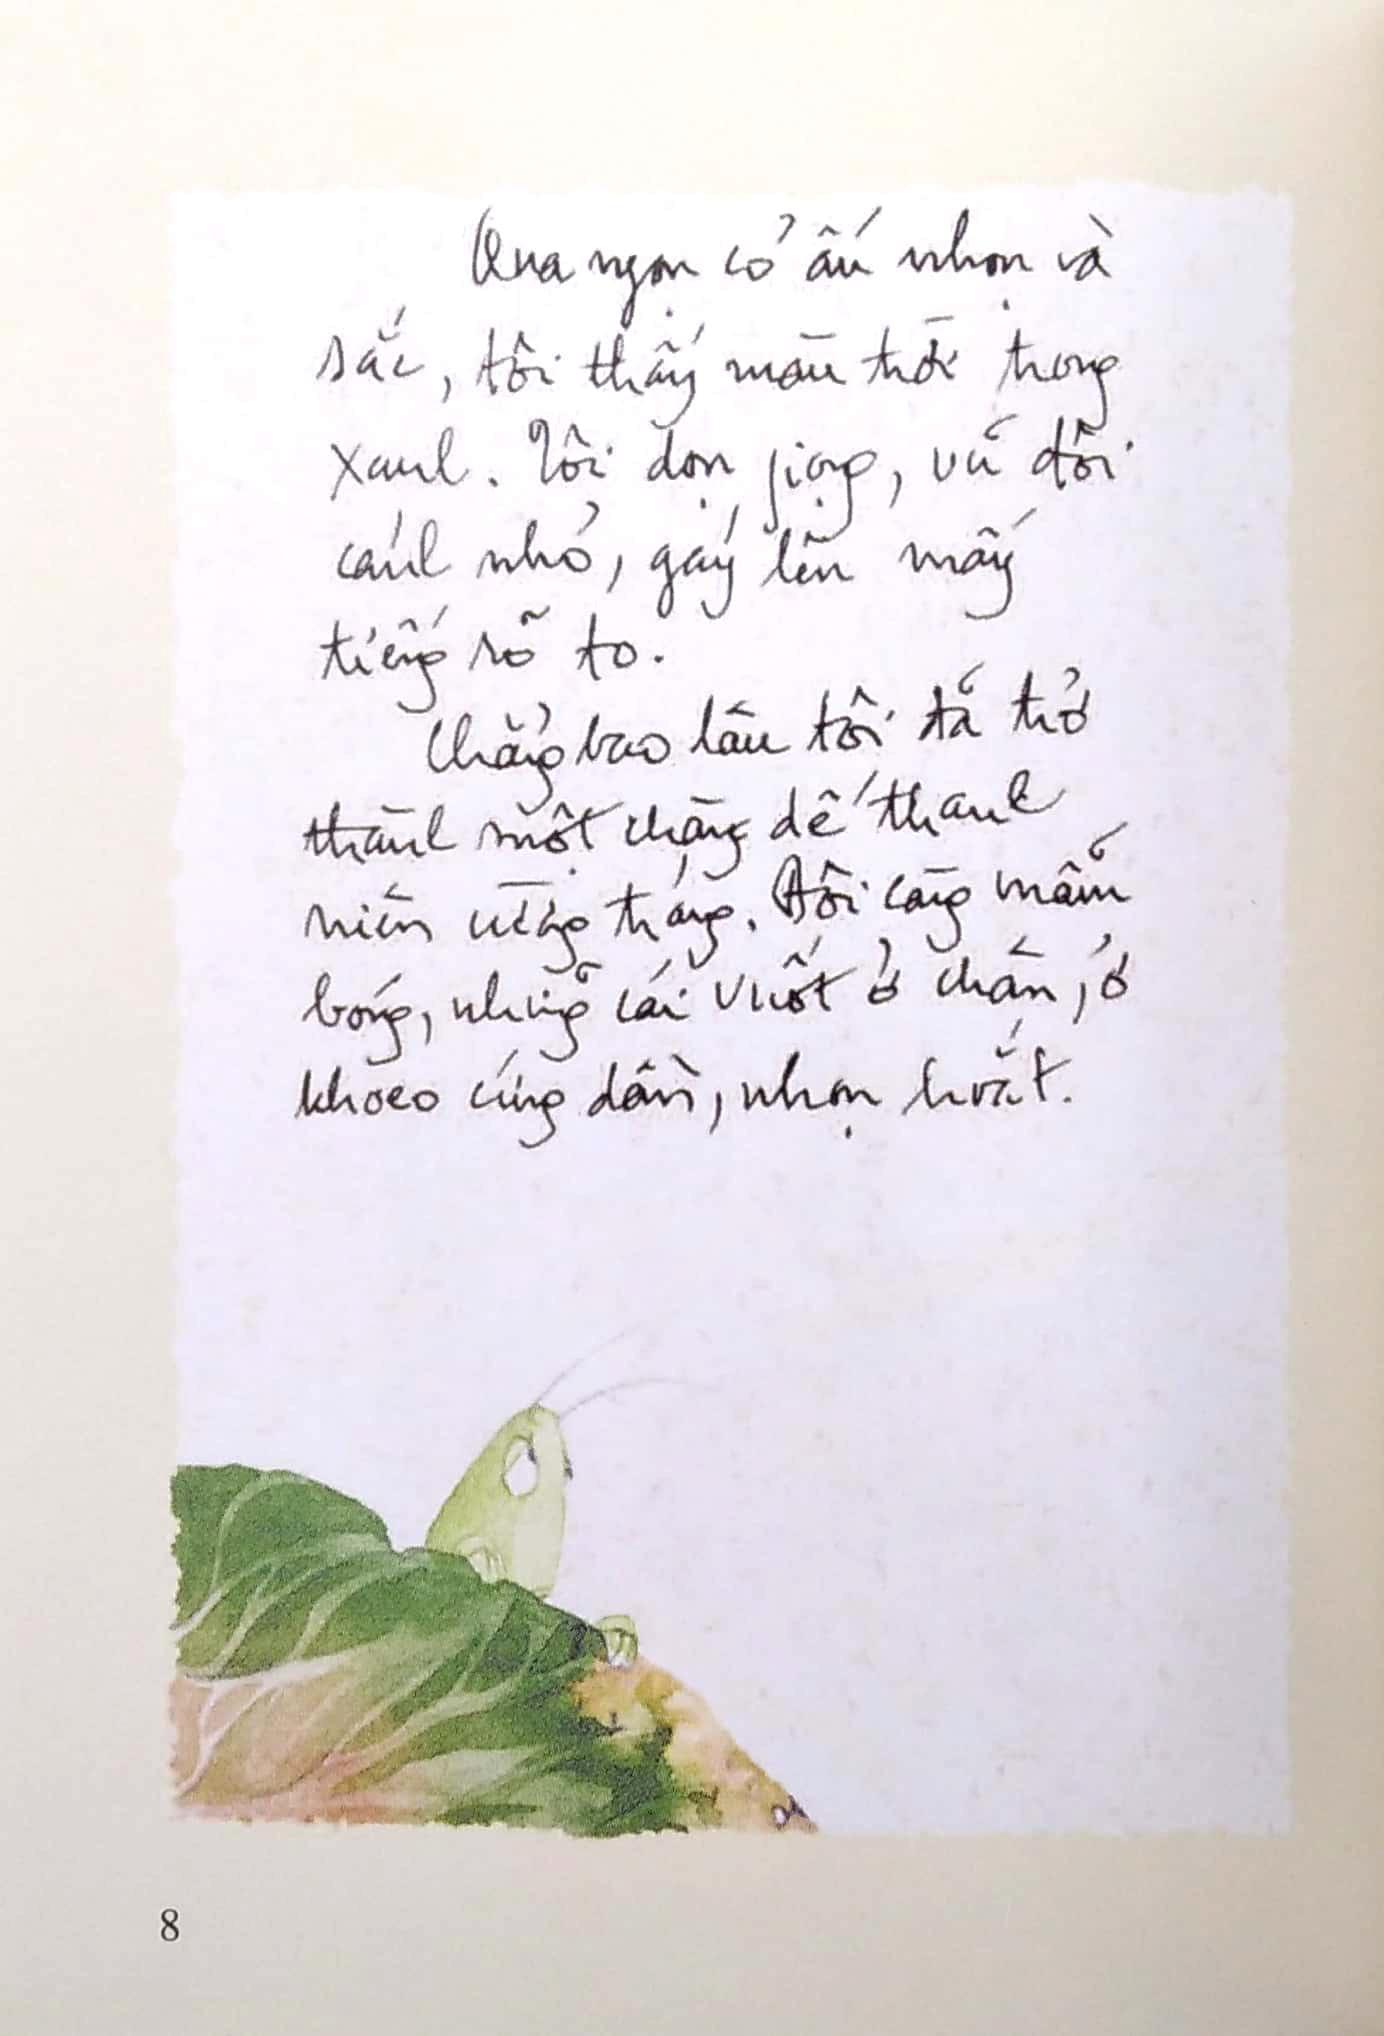 Qua ngọn cỏ ấu nhọn và
sắc, tôi thấy màu trời trong
xanh. Tôi dọn giọng, vũ đôi
cánh nhỏ, gáy lên mấy
tiếng rõ to.
Chẳng bao lâu tôi đã trở
thành một chàng dế thanh
niên cường tráng. Đôi càng mẫm
bóng, những cái vuốt ở chân, ở
khoeo cứng dần, nhọn hoắt.
8